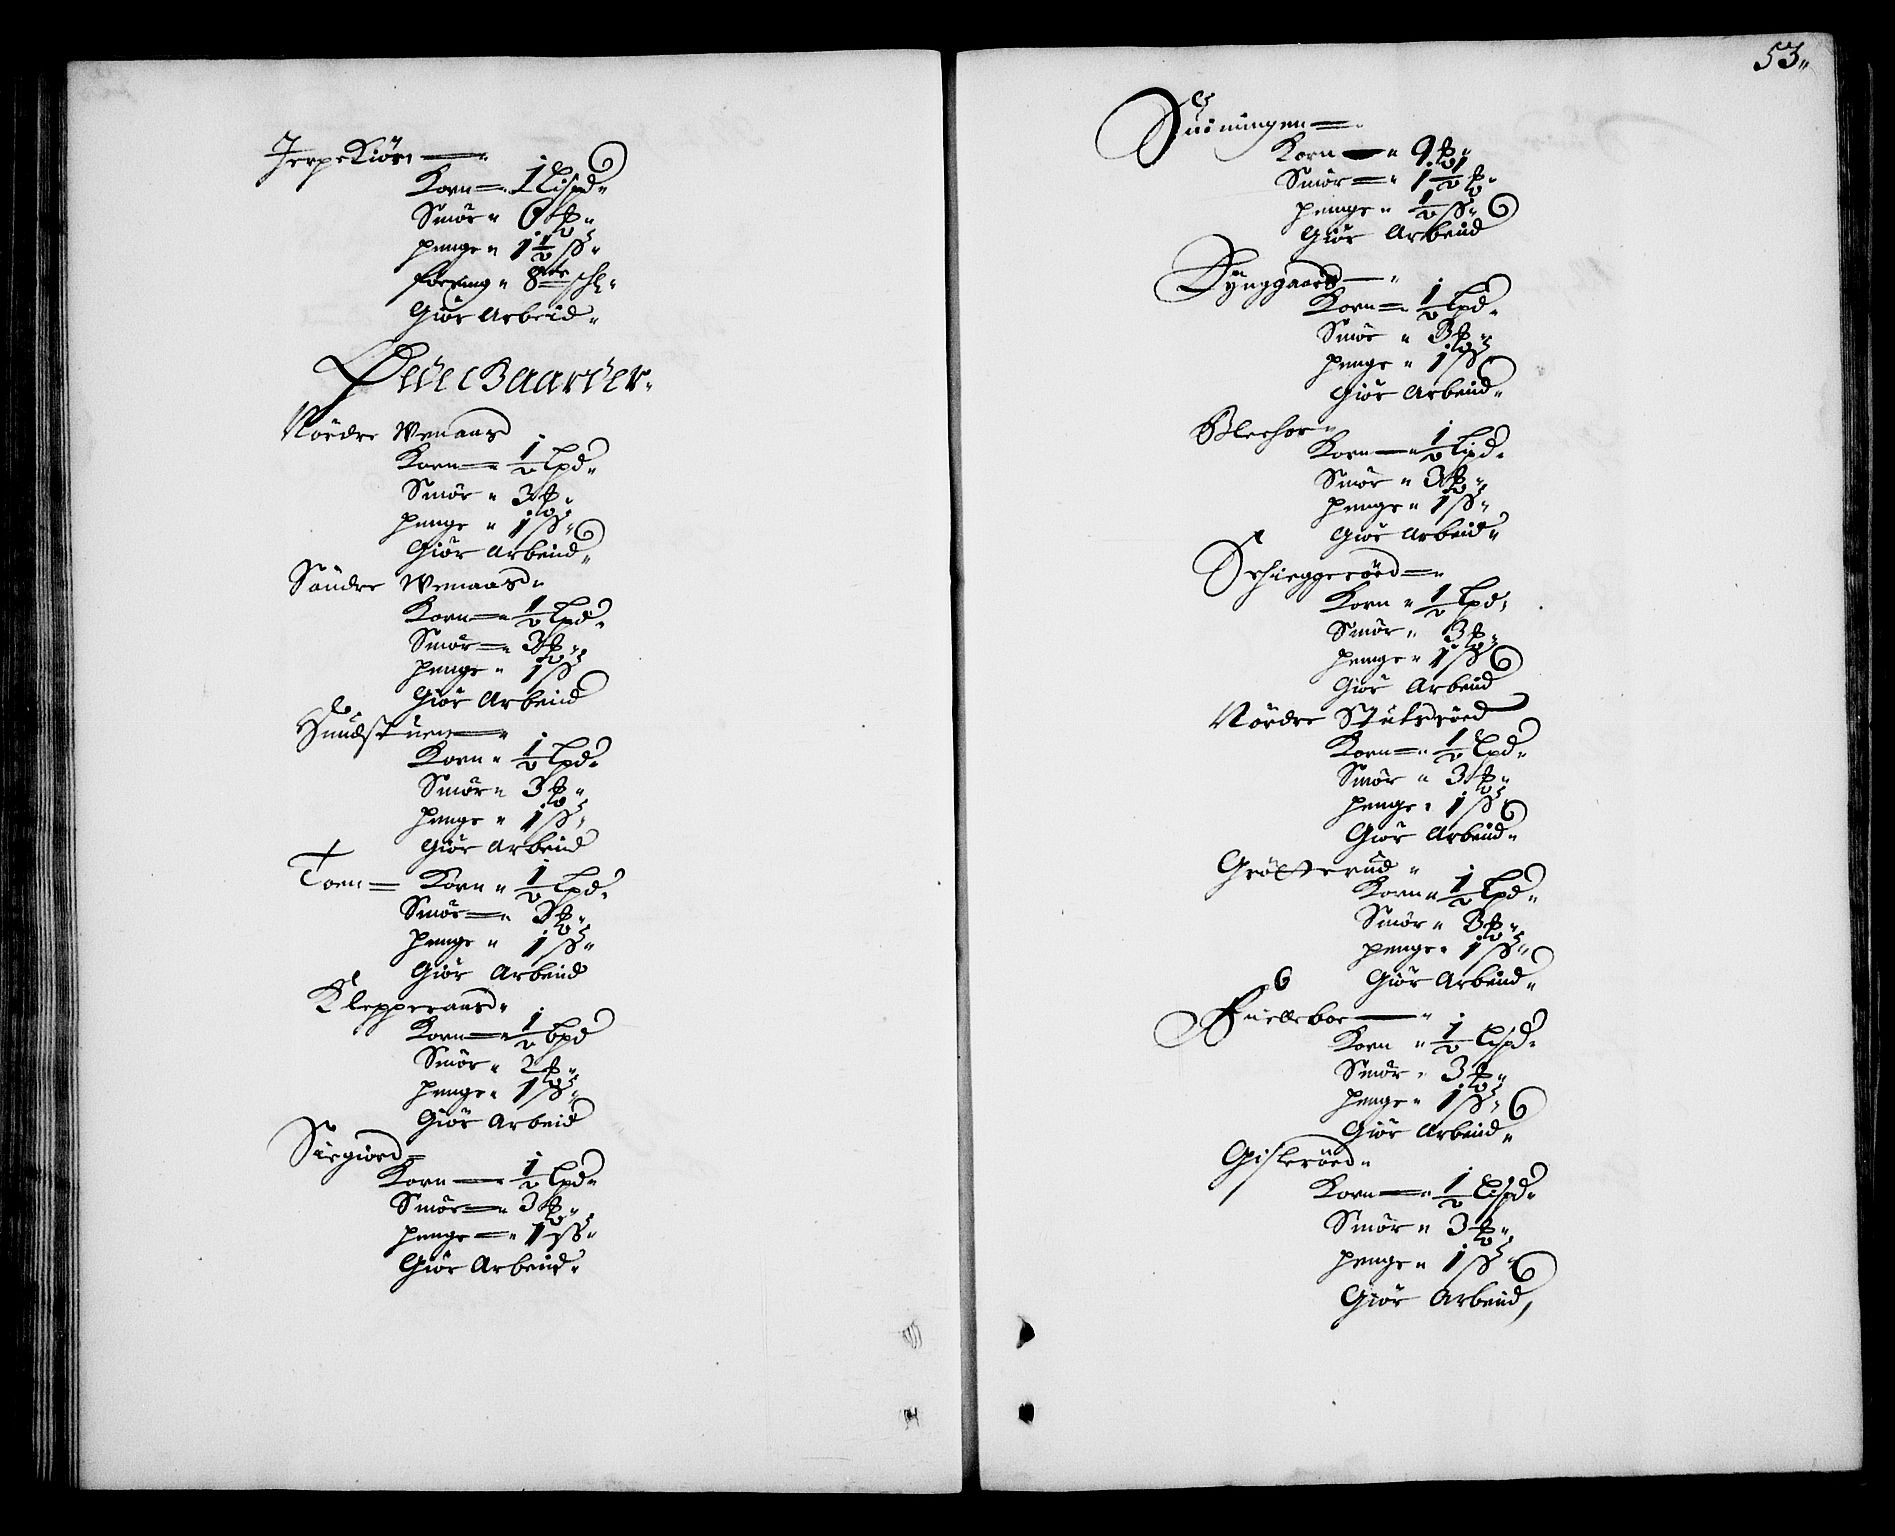 Jerpekiön
Korn 1 Lispd
Smör 6 ℔
penge 1½ ß
foering 8te schl:
Giör Arbeid
Öede Gaarder
Nördre Wenaas
Korn ½ Lpd
Smör 3 ℔
penge 1 ß
Giör Arbeid
Söndre Wenaas
Korn ½ Lpd
Smör 3 ℔
penge 1 ß
Giör Arbeid
Hundstuen
Korn ½ Lpd
Smör 3 ℔
penge 1 ß
Giör Arbeid
Toen Korn ½ Lpd
Smör 3 ℔
penge 1 ß
Giör Arbeid
Klepperaas
Korn ½ Lpd
Smör 2 ℔
penge 1 ß
Giör Arbeid
Siegiord
Korn ½ Lpd
Smör 3 ℔
penge 1 ß
Giör Arbeid
53
Suiningen
Korn 9 ℔
Smör 1½ ℔
penge ½ ß
Giör Arbeid
Dynggaard
Korn ½ Lpd
Smör 3 ℔
penge 1 ß
Giör Arbeid
Blechor
Korn ½ Lpd
Smör 3 ℔
penge 1 ß
Giör Arbeid
Schieggeröed
Korn ½ Lpd
Smör 3 ℔
penge 1 ß
Giör Arbeid
Nördre Stutsröed
Korn ½ Lpd
Smör 3 ℔
penge 1 ß
Giör Arbeid
Grölterud
Korn ½ Lpd
Smör 3 ℔
penge 1 ß
Giör Arbeid
Fuelleboe
Korn ½ Lispd
Smör 3 ℔
penge 1 ß
Giör Arbeid
Gisleröed
Korn ½ Lispd
Smör 3 ℔
penge 1 ß
Giör Arbeid